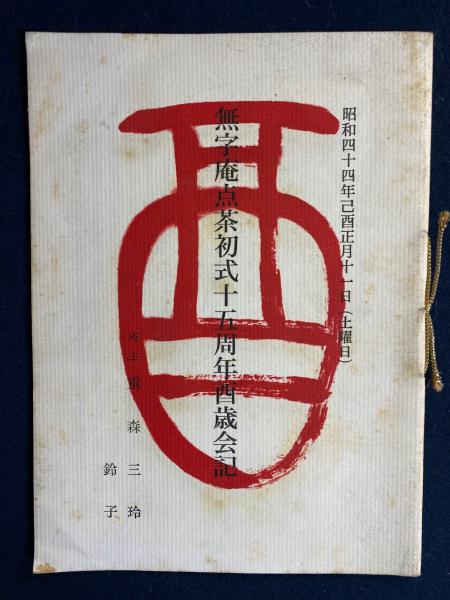 酉
昭和四十四年己酉正月十一日(土曜日)
無字庵点茶初式十五周年酉歳会記
庵主 重森三玲
鈴子